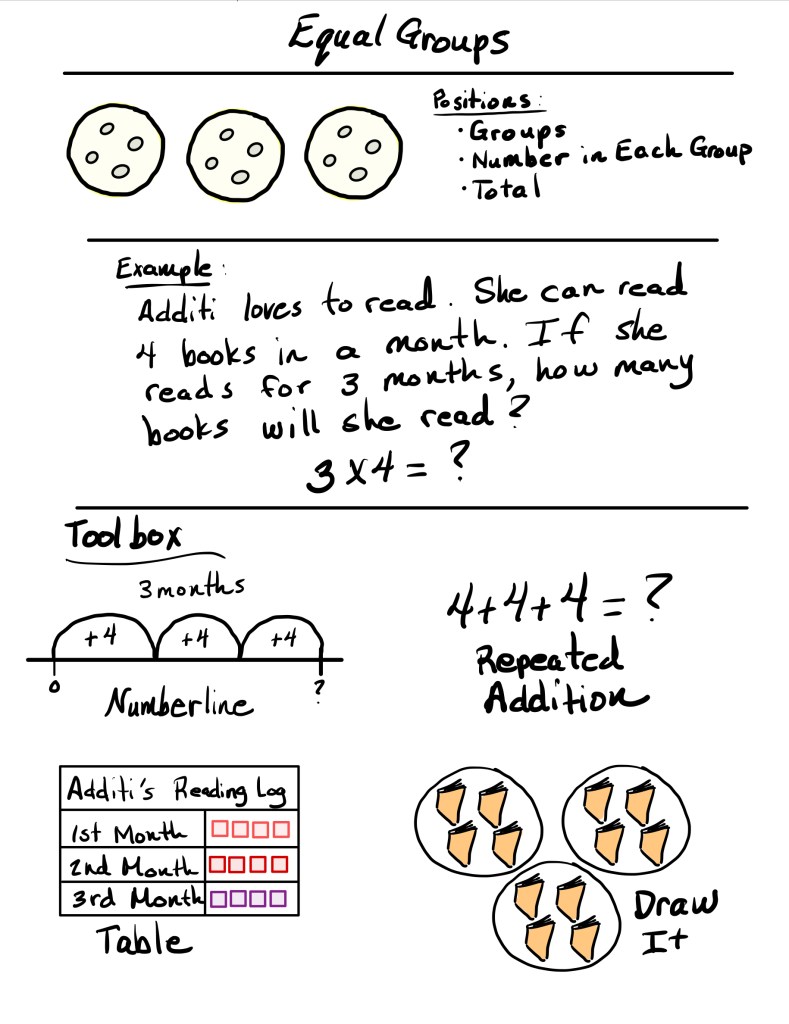 Equal Groups
Positions:
• Groups
• Number in Each Group
• Total
Example:
Additi loves to read. She can read
4 books in a month. If she
reads for 3 months, how many
books will she read?
3x4 = ?
Toolbox
3 months
+4 +4 +4
0 ?
Numberline
4+4+4 = ?
Repeated
Addition
Additi's Reading Log
1st Month
2nd Month
3rd Month
Table
Draw
It